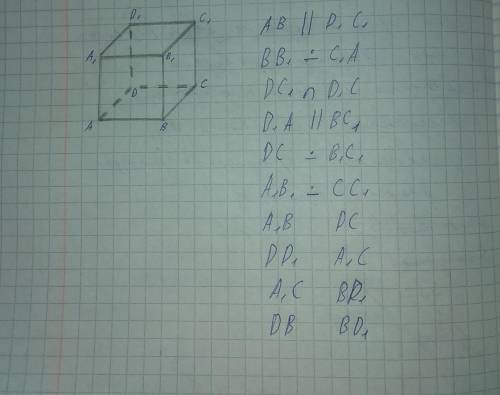 D₁ C₁
A₁ B₁
D C
A B
AB || D₁C₁
BB₁ ∸ C₁A
DC₁ ∩ D₁C
D₁A || BC₁
DC ∸ B₁C₁
A₁B₁ ∸ CC₁
A₁B DC
DD₁ A₁C
A₁C BD₁
DB BD₁